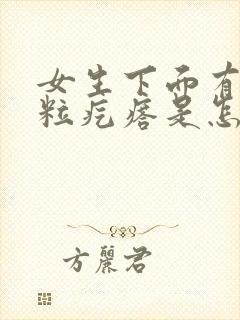 女生下面有
粒疙瘩是怎
方麗君